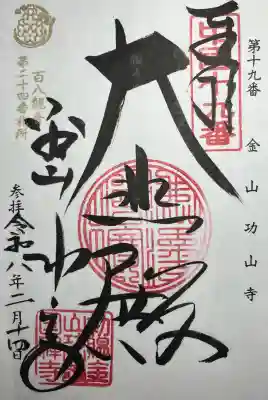 第十九番 金山 功山寺
奉拝
大悲殿
百八観音
第二十四番
金山
功山寺
参拝 令和八年二月十四日